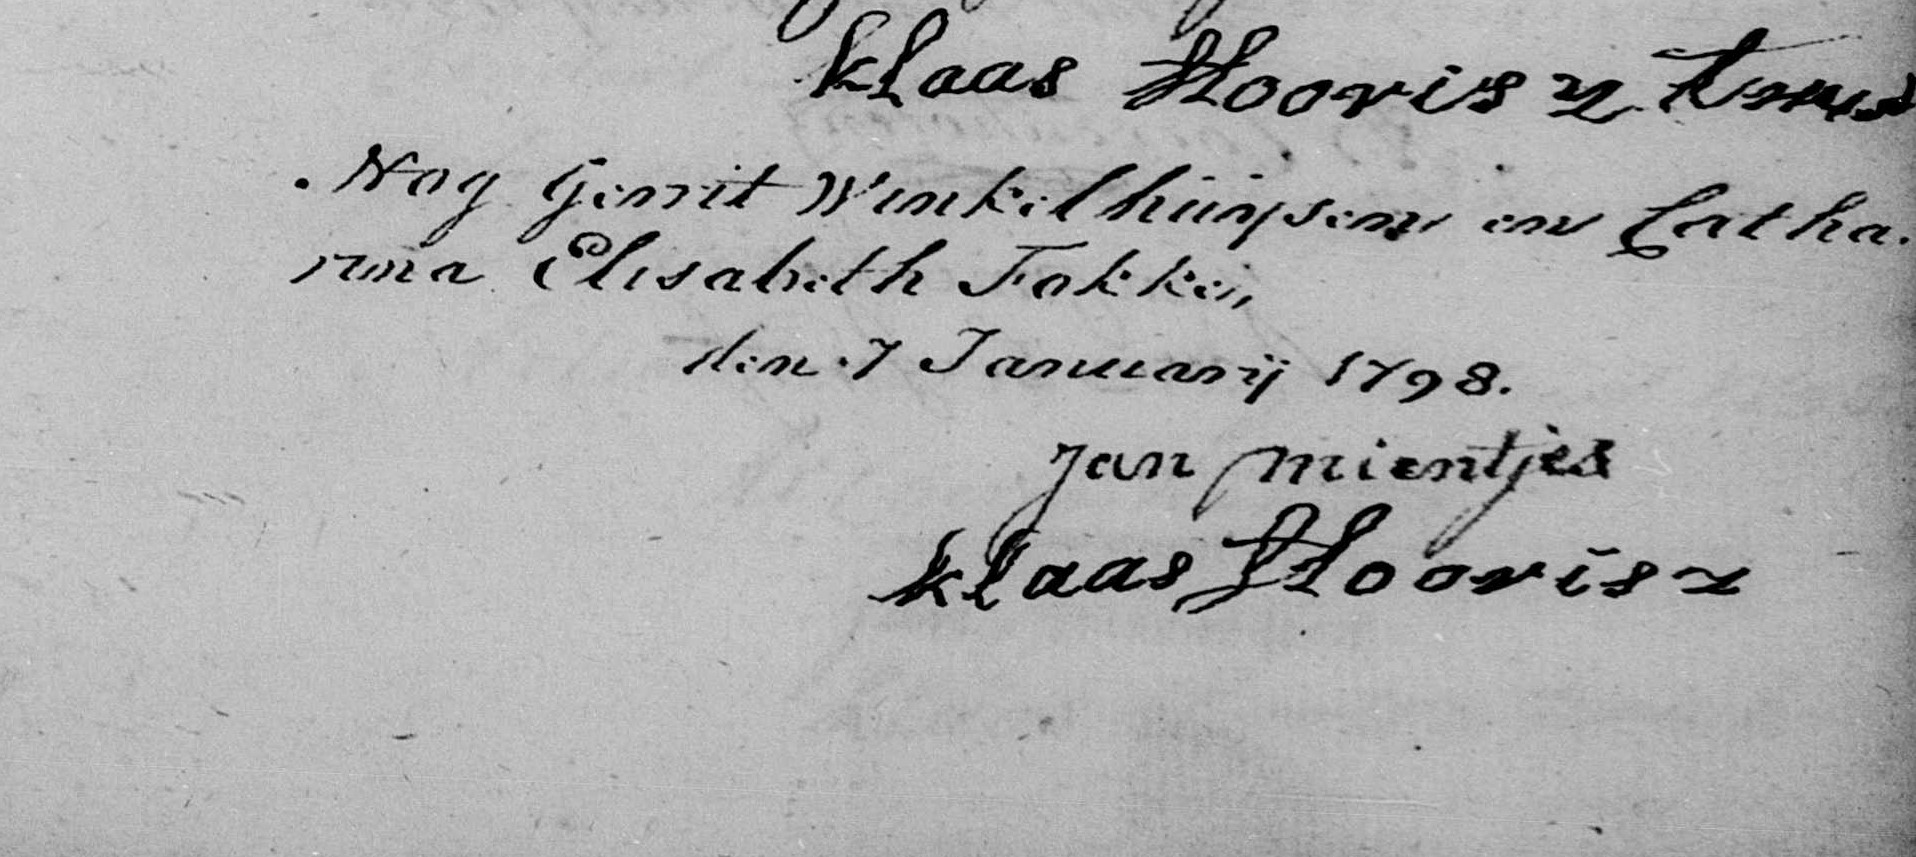 klaas Hoovis z
. Nog Gerrit Winkelhuijsen en Catha.
rina Elisabeth Fokken,
den 7 Januarij 1798.
Jan mientjes
klaas Hoovis z